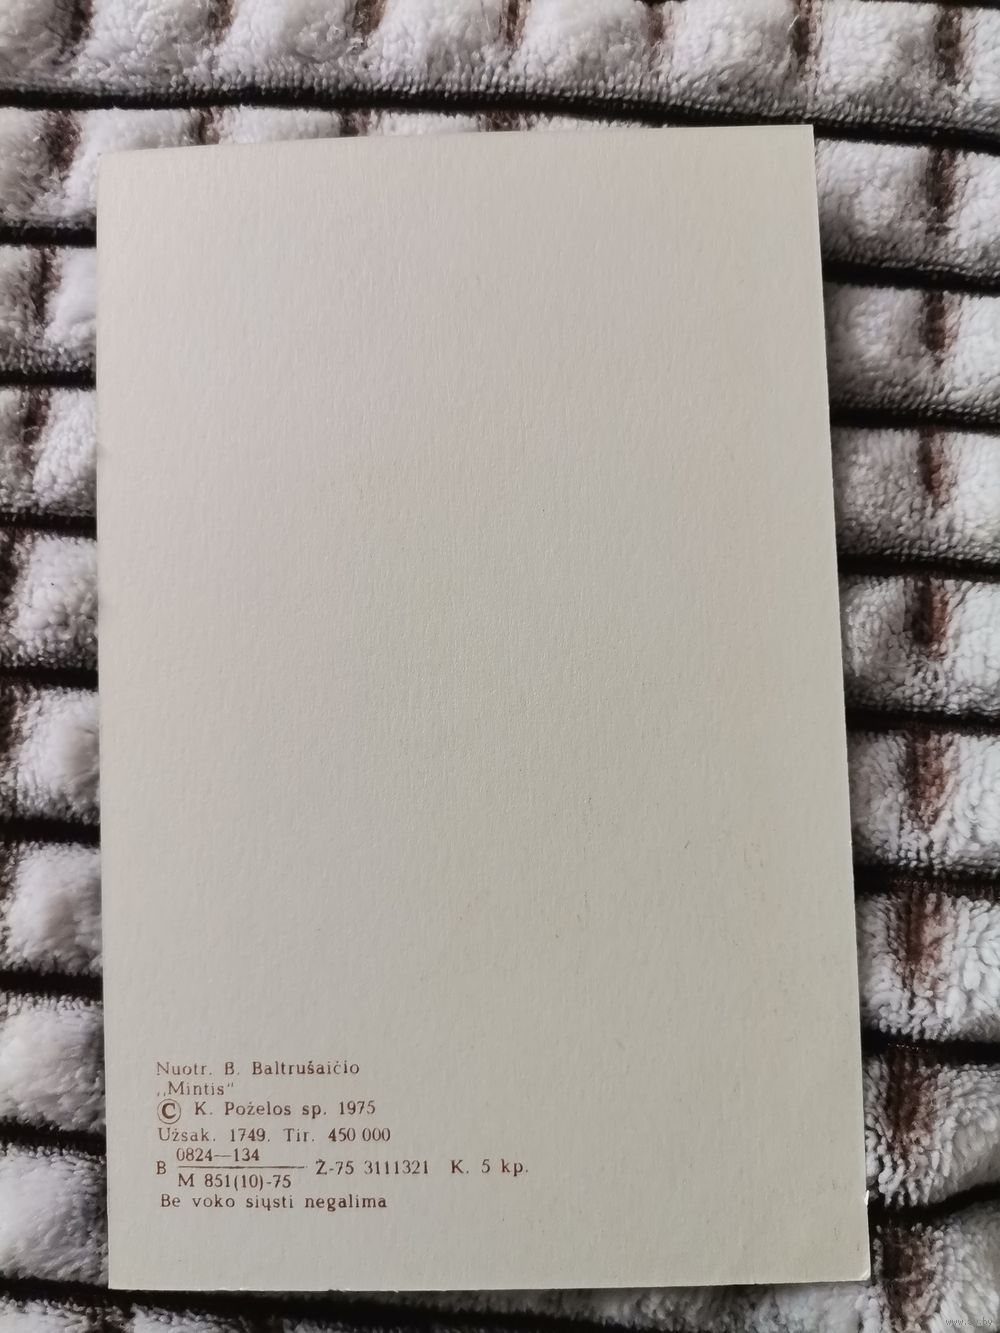 Nuotr. B. Baltrušaičio
„Mintis“
© K. Poželos sp. 1975
Užsak. 1749. Tir. 450 000
0824—134
B Ž-75 3111321 K. 5 kp.
M 851(10)-75
Be voko siųsti negalima